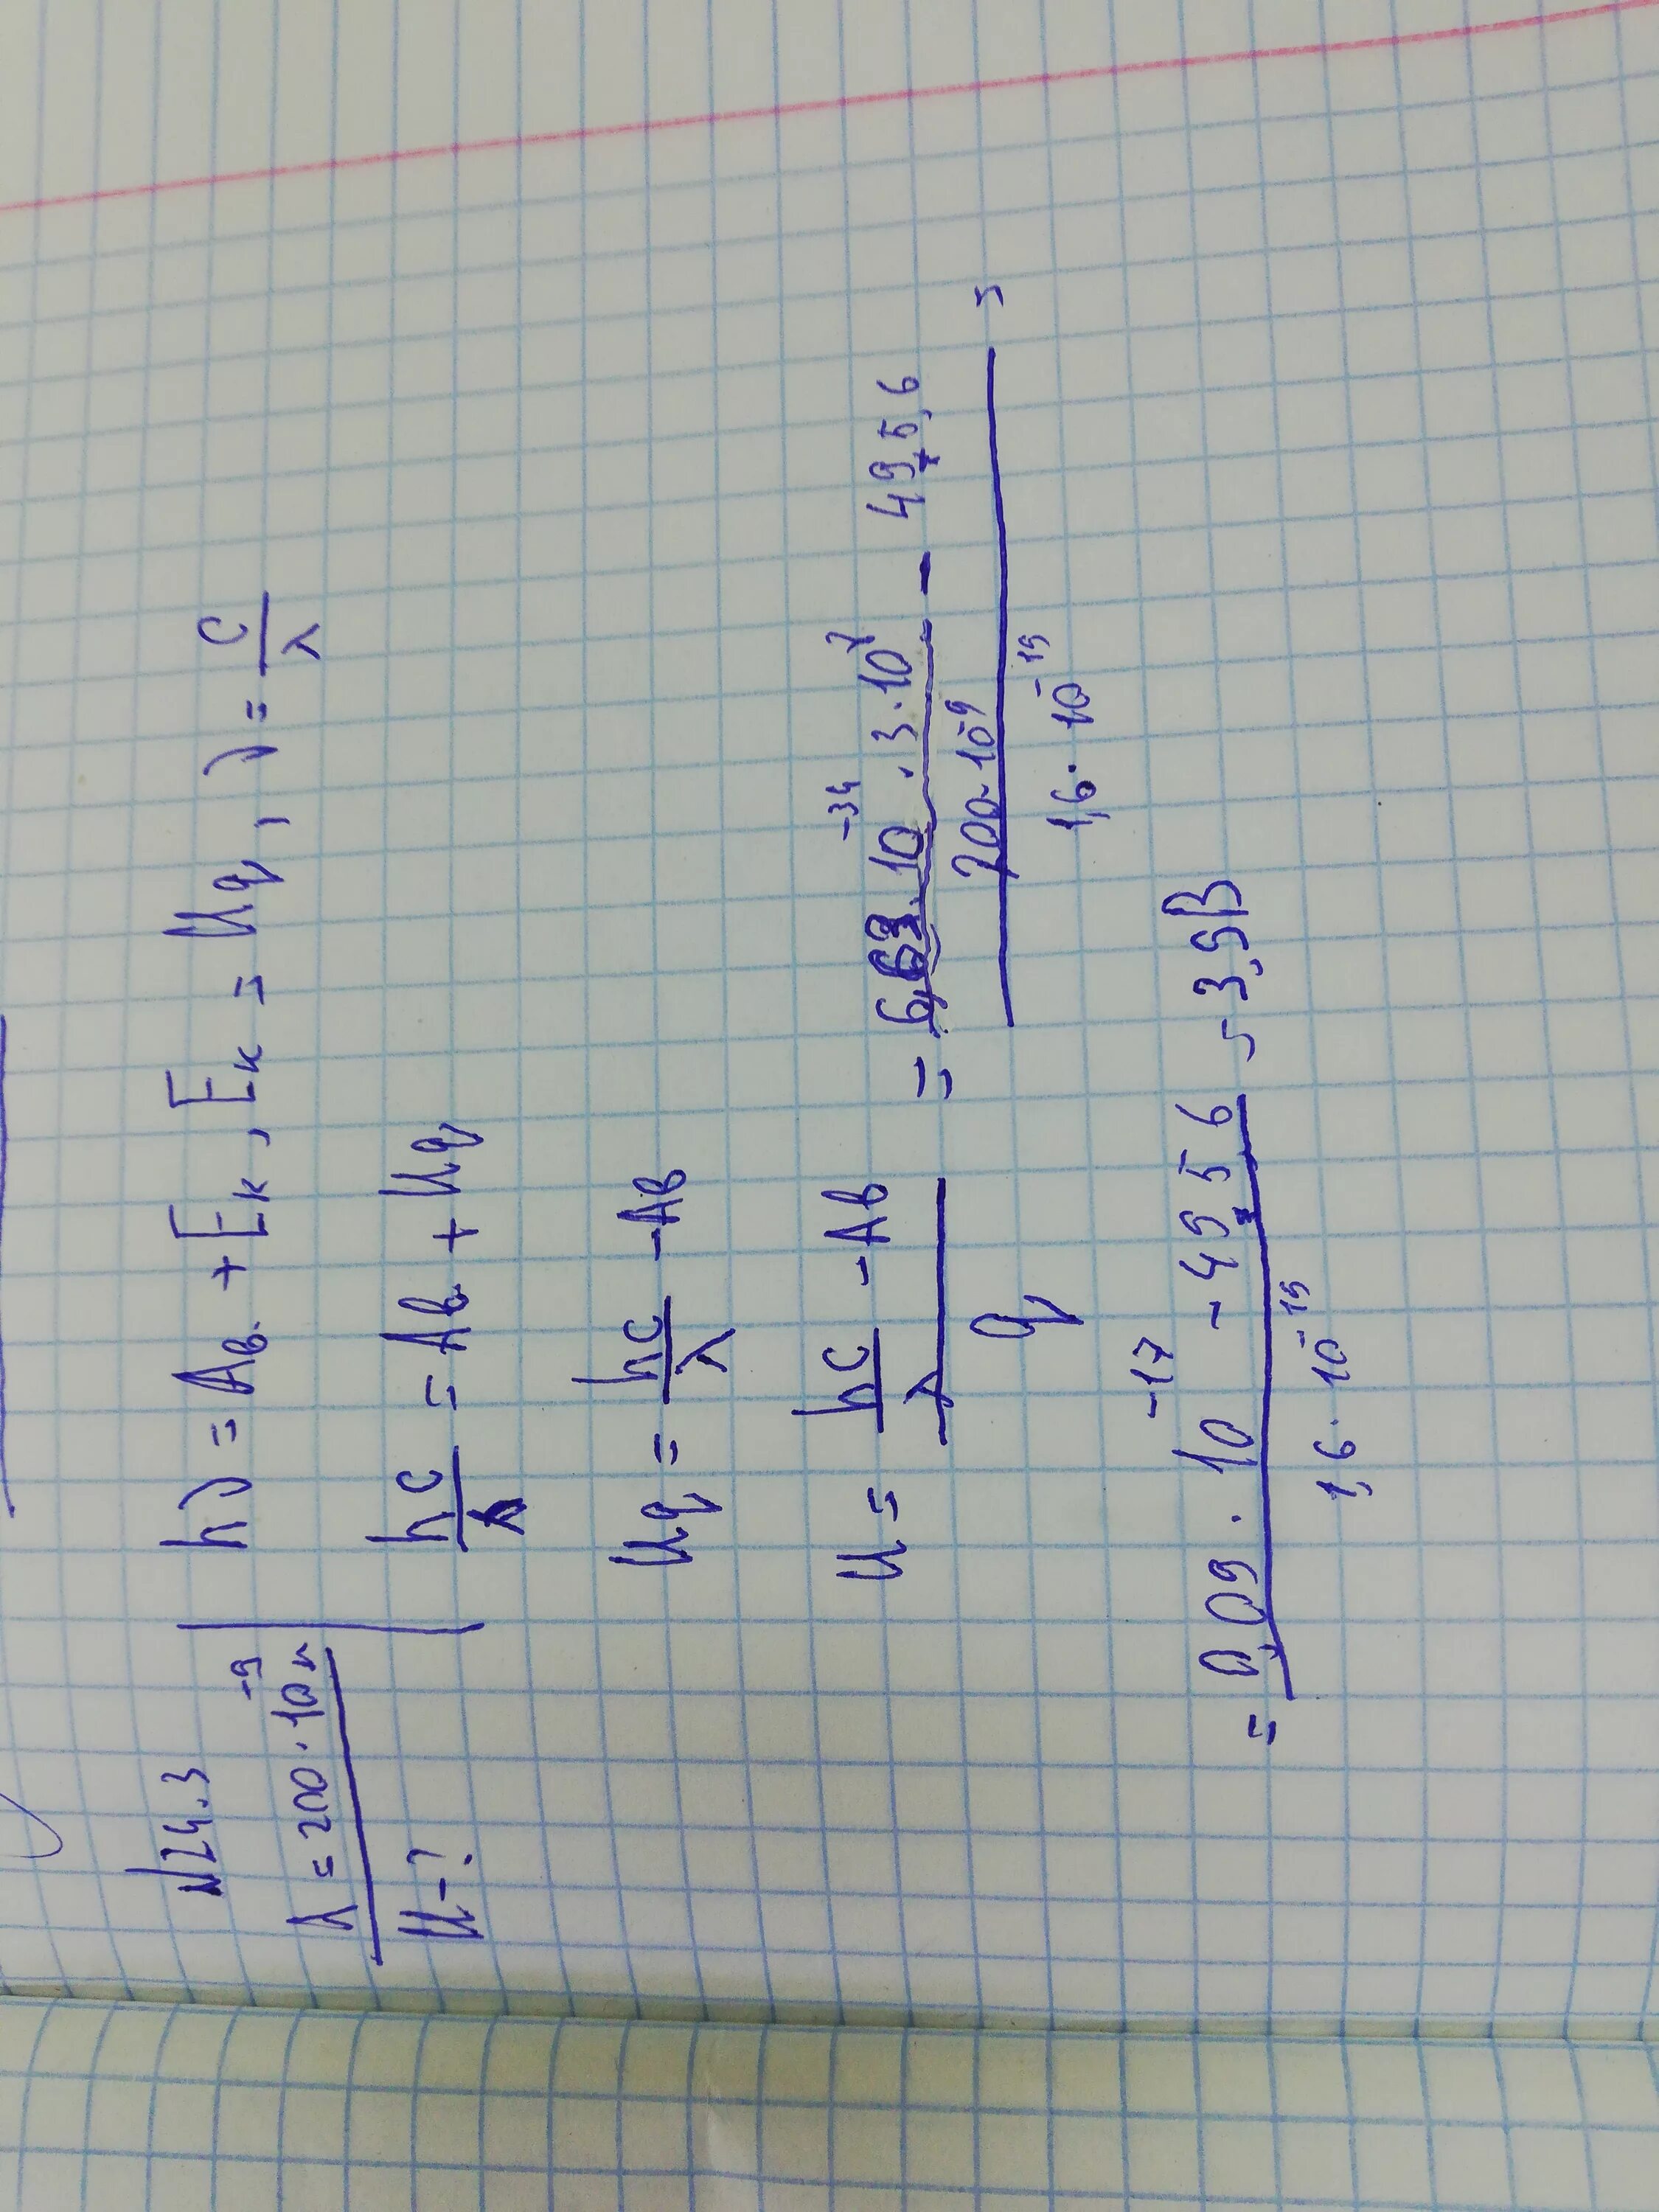 N24.3
λ = 200 · 10⁻⁹ м
U - ?
hν = Aв. + Eк, Eк = Uq, ν = c/λ
hc/λ = Aв + Uq
Uq = hc/λ - Aв
U = (hc/λ - Aв)/q = (6,63 · 10⁻³⁴ · 3 · 10⁷/200 · 10⁻⁹ - 495,6)/1,6 · 10⁻¹⁹ =
= (0,09 · 10⁻¹⁷ - 4956)/1,6 · 10⁻¹⁹ = 3,9В